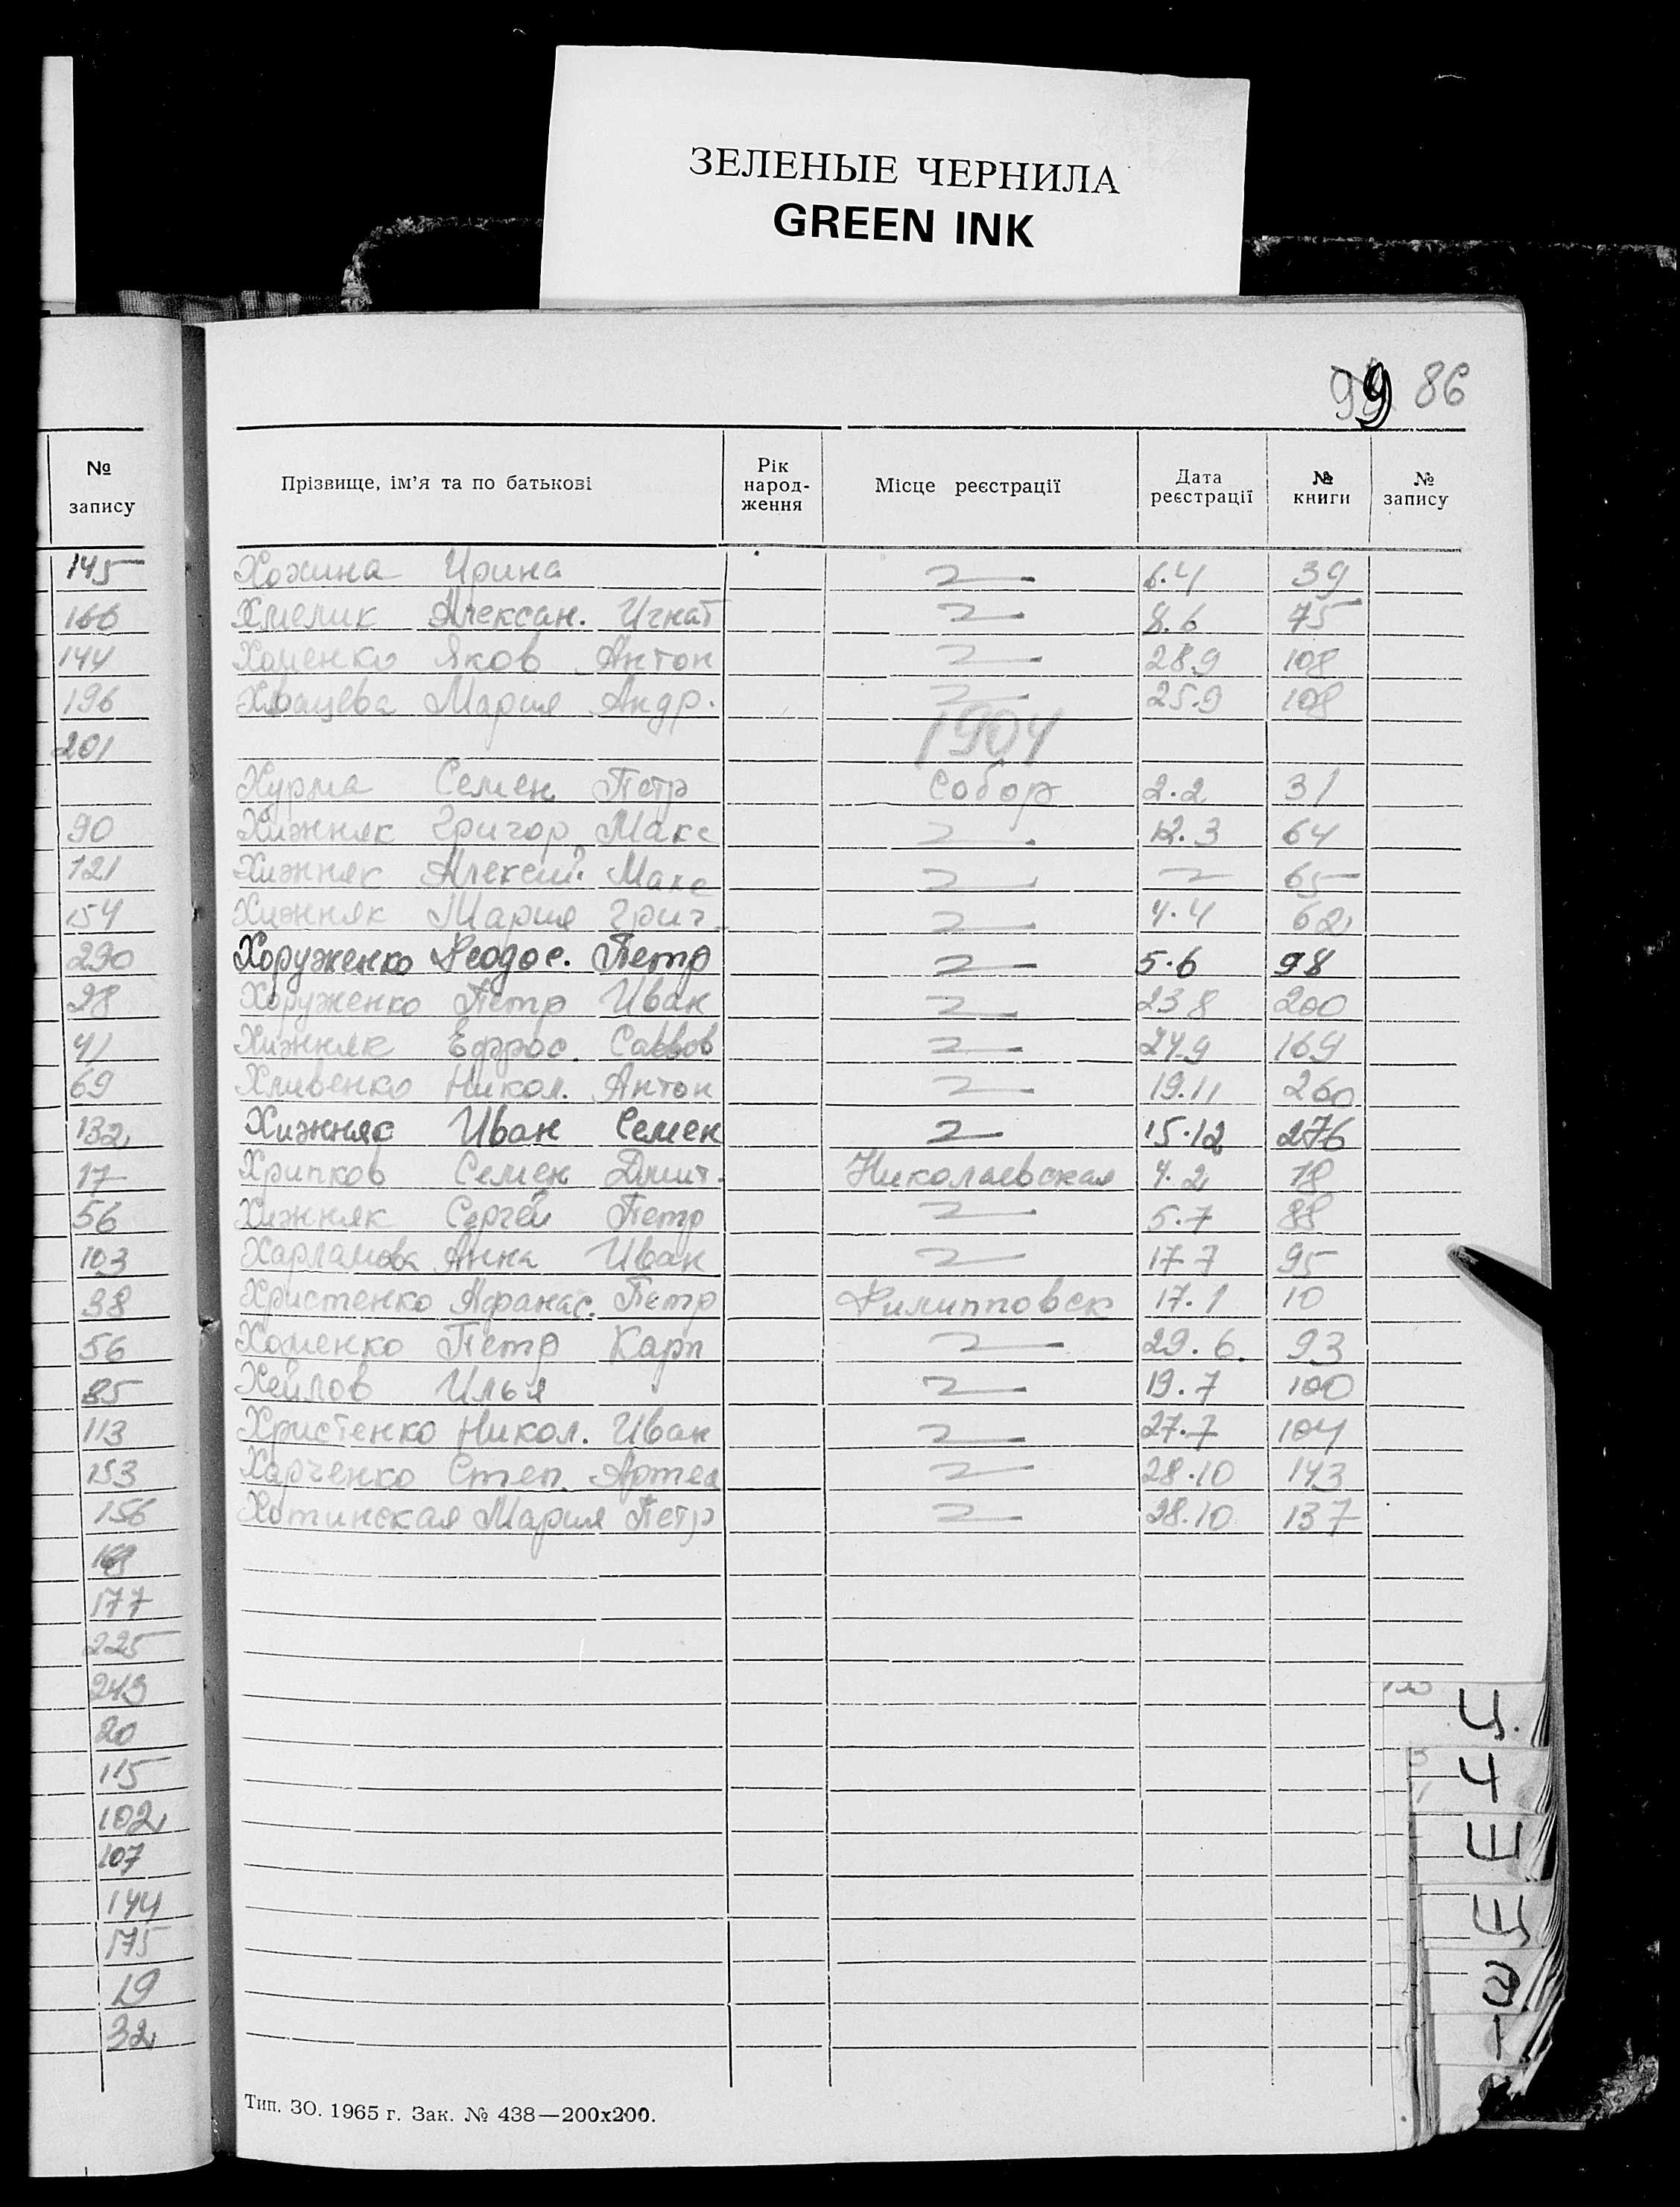 ЗЕЛЕНЫЕ ЧЕРНИЛА
GREEN INK
99 86
№ запису
145
166
144
196
201
90
121
154
290
28
41
69
132
17
56
103
38
56
85
113
153
156
177
225
243
20
115
102
107
144
175
19
32
Прізвище, ім'я та по батькові Рік народ-ження Місце реєстрації Дата реєстрації № книги № запису
Хожина Ирина 6.4 39
Хмелик Алексан. Игнат 8.6 75
Хоменко Яков Антон 28.9 108
Мария Андр. 25.9 108
1904
Хурма Семен Петр Собор 2.2 31
Хижняк Григор Макс 12.3 64
Хижняк Алексей Макс 65
Хижняк Мария Григ. 4.4 62
Хоруженко Феодос. Петр 5.6 98
Хоруженко Петр Иван 23 8 200
Хижняк Ефрос. Саввов 24.9 169
Хливенко Никол. Антон 19.11 260
Хижняк Иван Семен 15.12 276
Хрипков Семен Дмит. Николаевская 4.2 18
Хижняк Сергей Петр 5.7 88
Харламова Анна Иван 17 7 95
Христенко Афанас. Петр Филипповск 17.1 10
Хоменко Петр Карп 29.6. 93
Хейлов Илья 19.7 100
Христенко Никол. Иван 27.7 104
Харченко Степ. Артем 28.10 143
Хотинская Мария Петр 28.10 137
Ц.
Ч
Ш
Щ
Э
Тип. ЗО. 1965 г. Зак. № 438—200х200.